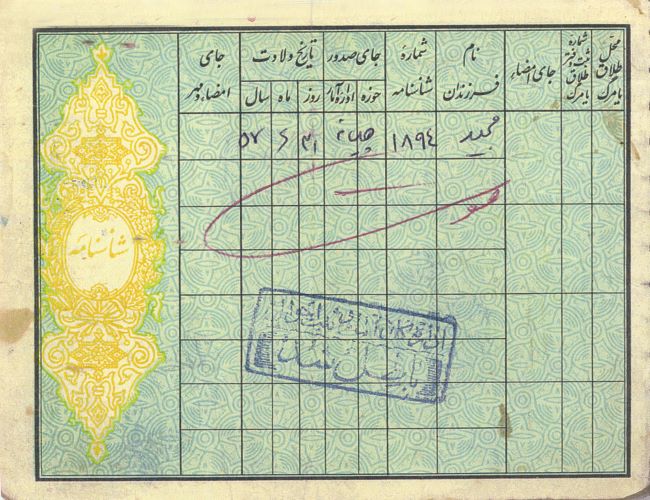 محل طلاق یا مرگ
شماره ثبت دفتر طلاق یا مرگ
جای امضاء
نام فرزندان
شمارهٔ شناسنامه
جای صدور
حوزه
اداره آمار
تاریخ ولادت
روز
ماه
سال
جای امضاء و مهر
مجید
۱۸۹۴
۳۱
۶
۵۷
شناسنامه
باطل شد